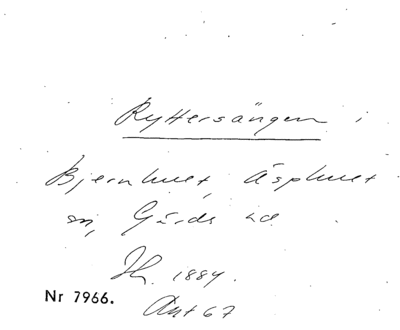 Ryttersängen i
Bjernhult, Äsphult
sn, Gärds hd
Ht. 1884.
Nr 7966.
Ant 67